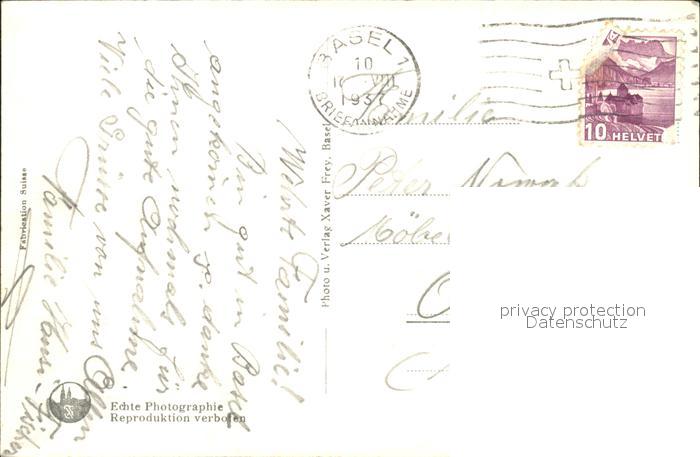 Werte Familie!
Bin gut in Basel
angekommen u. danke
Ihnen nochmals für
die gute Aufnahme.
Viele Grüsse von uns Allen
Familie Hansi-Fischer
Familie
Peter Nowak
Möbel
BASEL 1
10
1937
BRIEFANNAHME
10 HELVETIA
Photo u. Verlag Xaver Frey, Basel
Fabrication Suisse
Echte Photographie
Reproduktion verboten
privacy protection
Datenschutz